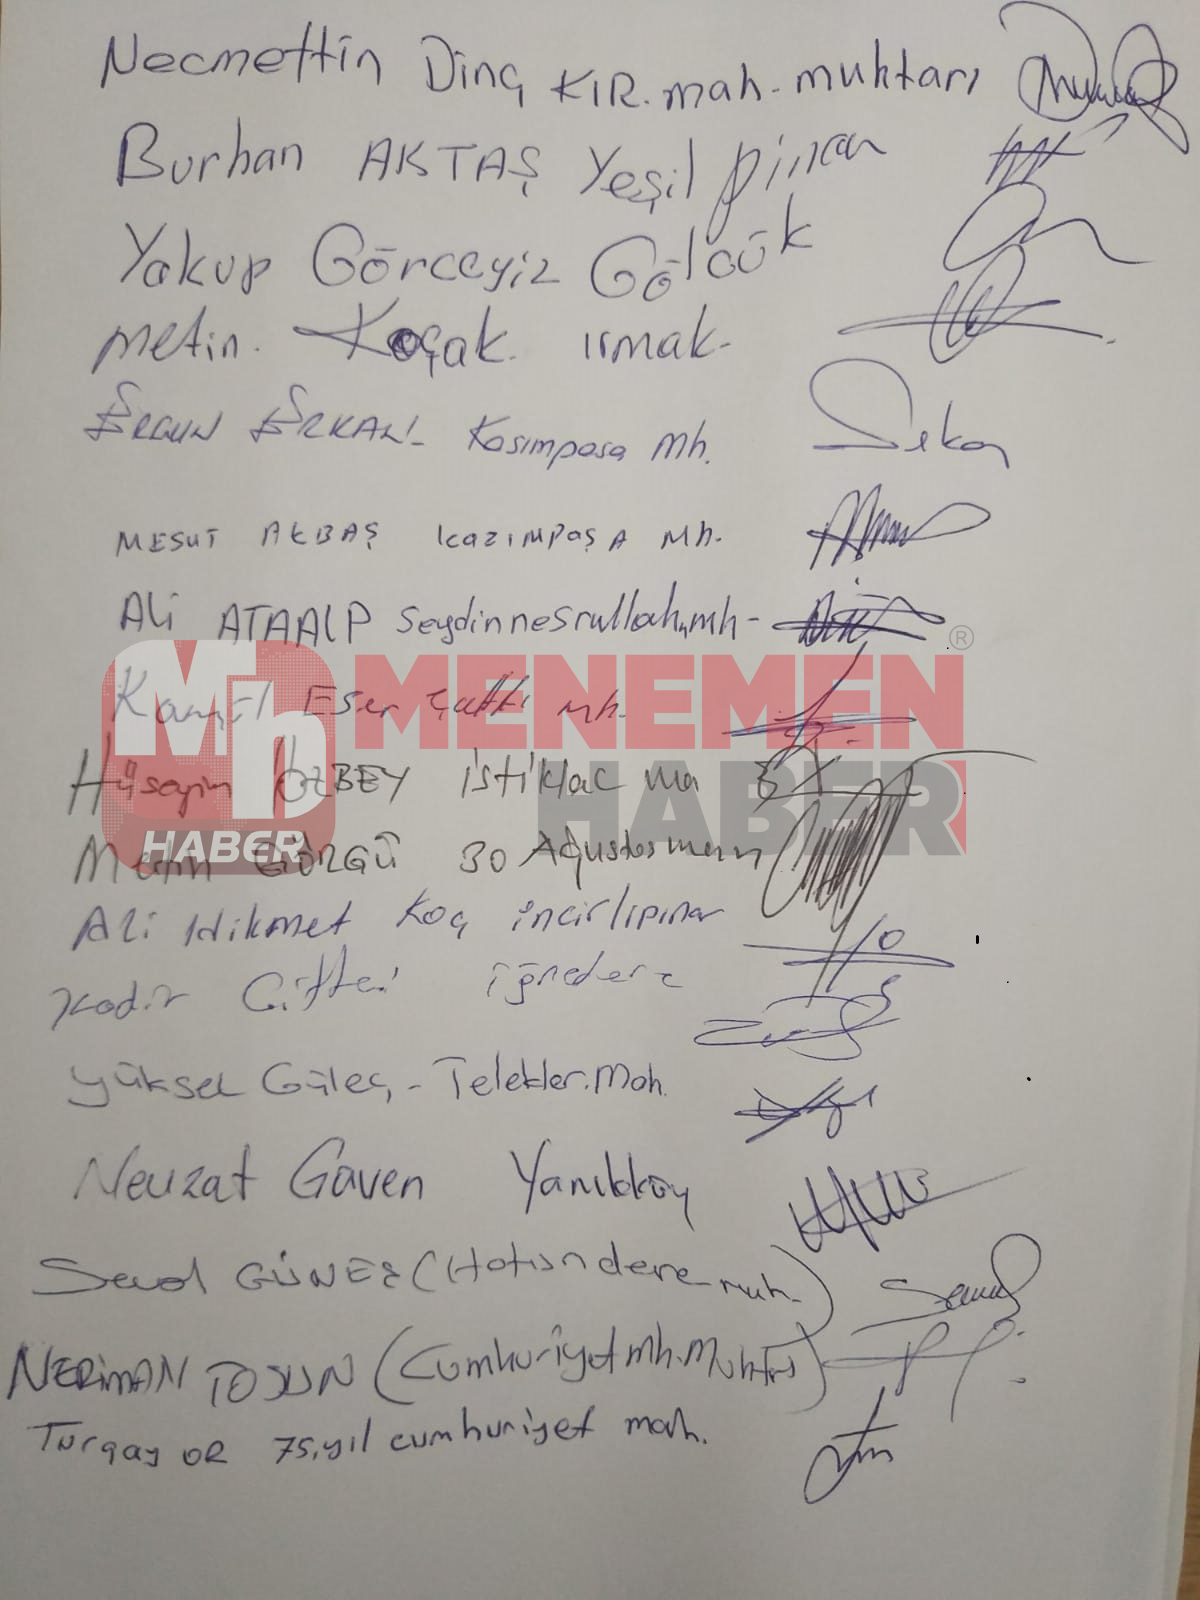 Necmettin Dinç KIR. mah. muhtarı
Burhan AKTAŞ Yeşil pınar
Yakup Görceyiz Gölcük
Metin. Koçak. ırmak.
ERGUN ERKAN- Kasımpaşa Mh. Sekon
MESUT AKBAŞ KAZIMPAŞA Mh.
Ali ATAALP Seydinnesrullah mh-
Kamil Eser Çatkı mh.
MENEMEN ®
Hüseyin ÖZBEY istiklac ma
HABER
Mh
HABER
Metin GÖRGÜ 30 Ağustos
Ali Hikmet Koç incirlipınar
Kadir Çiftçi iğnedere
Yüksel Güleç - Telekler. Mah.
Nevzat Gaven Yanıkköy
GÜNEŞ (Hatundere mah.)
NERİMAN TOSUN (Cumhuriyet Mh. Muhtarı)
Turgay OR 75.yıl cumhuriyet mah.